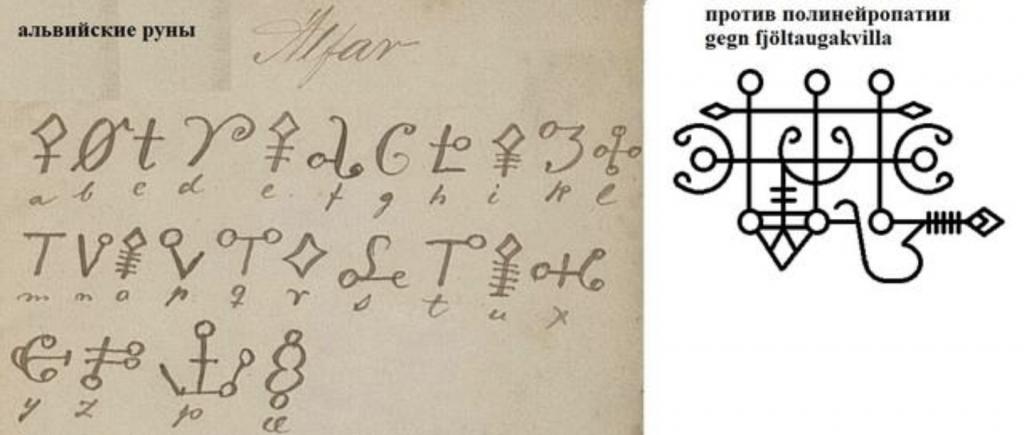 альвийские руны
Alfar
a b c d e f g h i k l
m n o p q r s t u x
y z þ æ
против полинейропатии
gegn fjöltaugakvilla